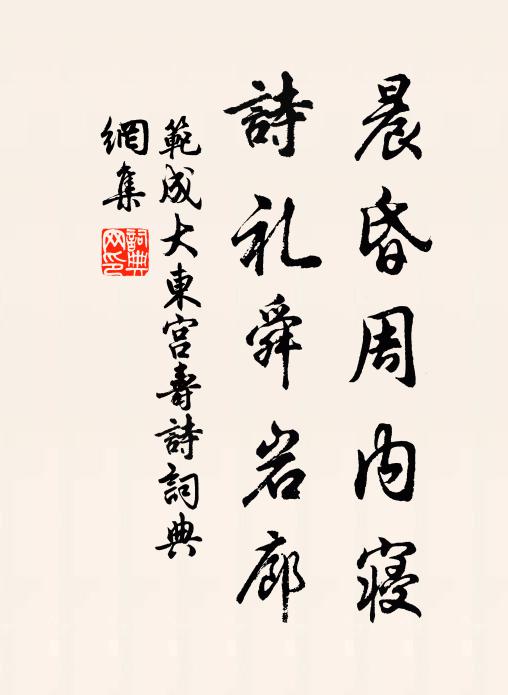 晨昏周内寝
詩礼舜岩廊
範成大東宮壽詩詞典
網集
詞典網印